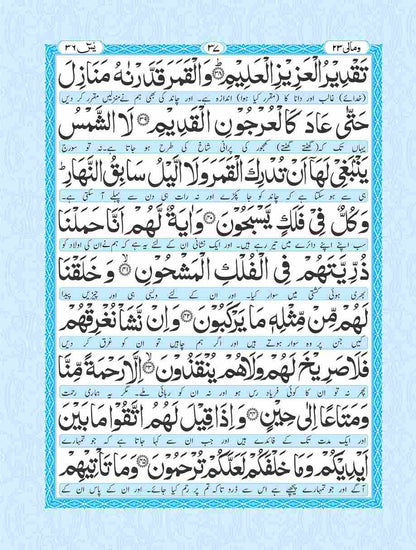 ومالی ٢٣ ٣٧ یٰسٓ ٣٦
تَقْدِيْرُ الْعَزِيْزِ الْعَلِيْمِ ﴿٣٨﴾ وَالْقَمَرَ قَدَّرْنٰهُ مَنَازِلَ
(خدائے) غالب اور دانا کا (مقرر کیا ہوا) اندازہ ہے۔ اور چاند کی بھی ہم نے منزلیں مقرر کر دیں
حَتّٰى عَادَ كَالْعُرْجُوْنِ الْقَدِيْمِ ﴿٣٩﴾ لَا الشَّمْسُ
یہاں تک کہ (گھٹتے گھٹتے) کھجور کی پرانی شاخ کی طرح ہو جاتا ہے۔ نہ تو سورج
يَنْۢبَغِيْ لَهَاۤ اَنْ تُدْرِكَ الْقَمَرَ وَلَا الَّيْلُ سَابِقُ النَّهَارِ ؕ
ہی سے ہو سکتا ہے کہ چاند کو جا پکڑے اور نہ رات ہی دن سے پہلے آ سکتی ہے۔
وَكُلٌّ فِيْ فَلَكٍ يَّسْبَحُوْنَ ﴿٤٠﴾ وَاٰيَةٌ لَّهُمْ اَنَّا حَمَلْنَا
سب اپنے اپنے دائرے میں تیر رہے ہیں۔ اور ایک نشانی ان کے لئے یہ ہے کہ ہم نے ان کی اولاد کو
ذُرِّيَّتَهُمْ فِي الْفُلْكِ الْمَشْحُوْنِ ﴿٤١﴾ وَخَلَقْنَا
بھری ہوئی کشتی میں سوار کیا۔ اور ان کے لئے ویسی ہی اور چیزیں پیدا
لَهُمْ مِّنْ مِّثْلِهٖ مَا يَرْكَبُوْنَ ﴿٤٢﴾ وَاِنْ نَّشَاْ نُغْرِقْهُمْ
کیں جن پر وہ سوار ہوتے ہیں اور اگر ہم چاہیں تو ان کو غرق کر دیں
فَلَا صَرِيْخَ لَهُمْ وَلَا هُمْ يُنْقَذُوْنَ ﴿٤٣﴾ اِلَّا رَحْمَةً مِّنَّا
پھر نہ تو ان کا کوئی فریاد رس ہو اور نہ ان کو رہائی ملے۔ مگر یہ ہماری رحمت
وَمَتَاعًا اِلٰى حِيْنٍ ﴿٤٤﴾ وَاِذَا قِيْلَ لَهُمُ اتَّقُوْا مَا بَيْنَ
اور ایک مدت تک کے فائدے ہیں اور جب ان سے کہا جاتا ہے کہ جو تمہارے
اَيْدِيْكُمْ وَمَا خَلْفَكُمْ لَعَلَّكُمْ تُرْحَمُوْنَ ﴿٤٥﴾ وَمَا تَاْتِيْهِمْ
آگے اور جو تمہارے پیچھے ہے اس سے ڈرو تاکہ تم پر رحم کیا جائے۔ اور ان کے پاس ان کے